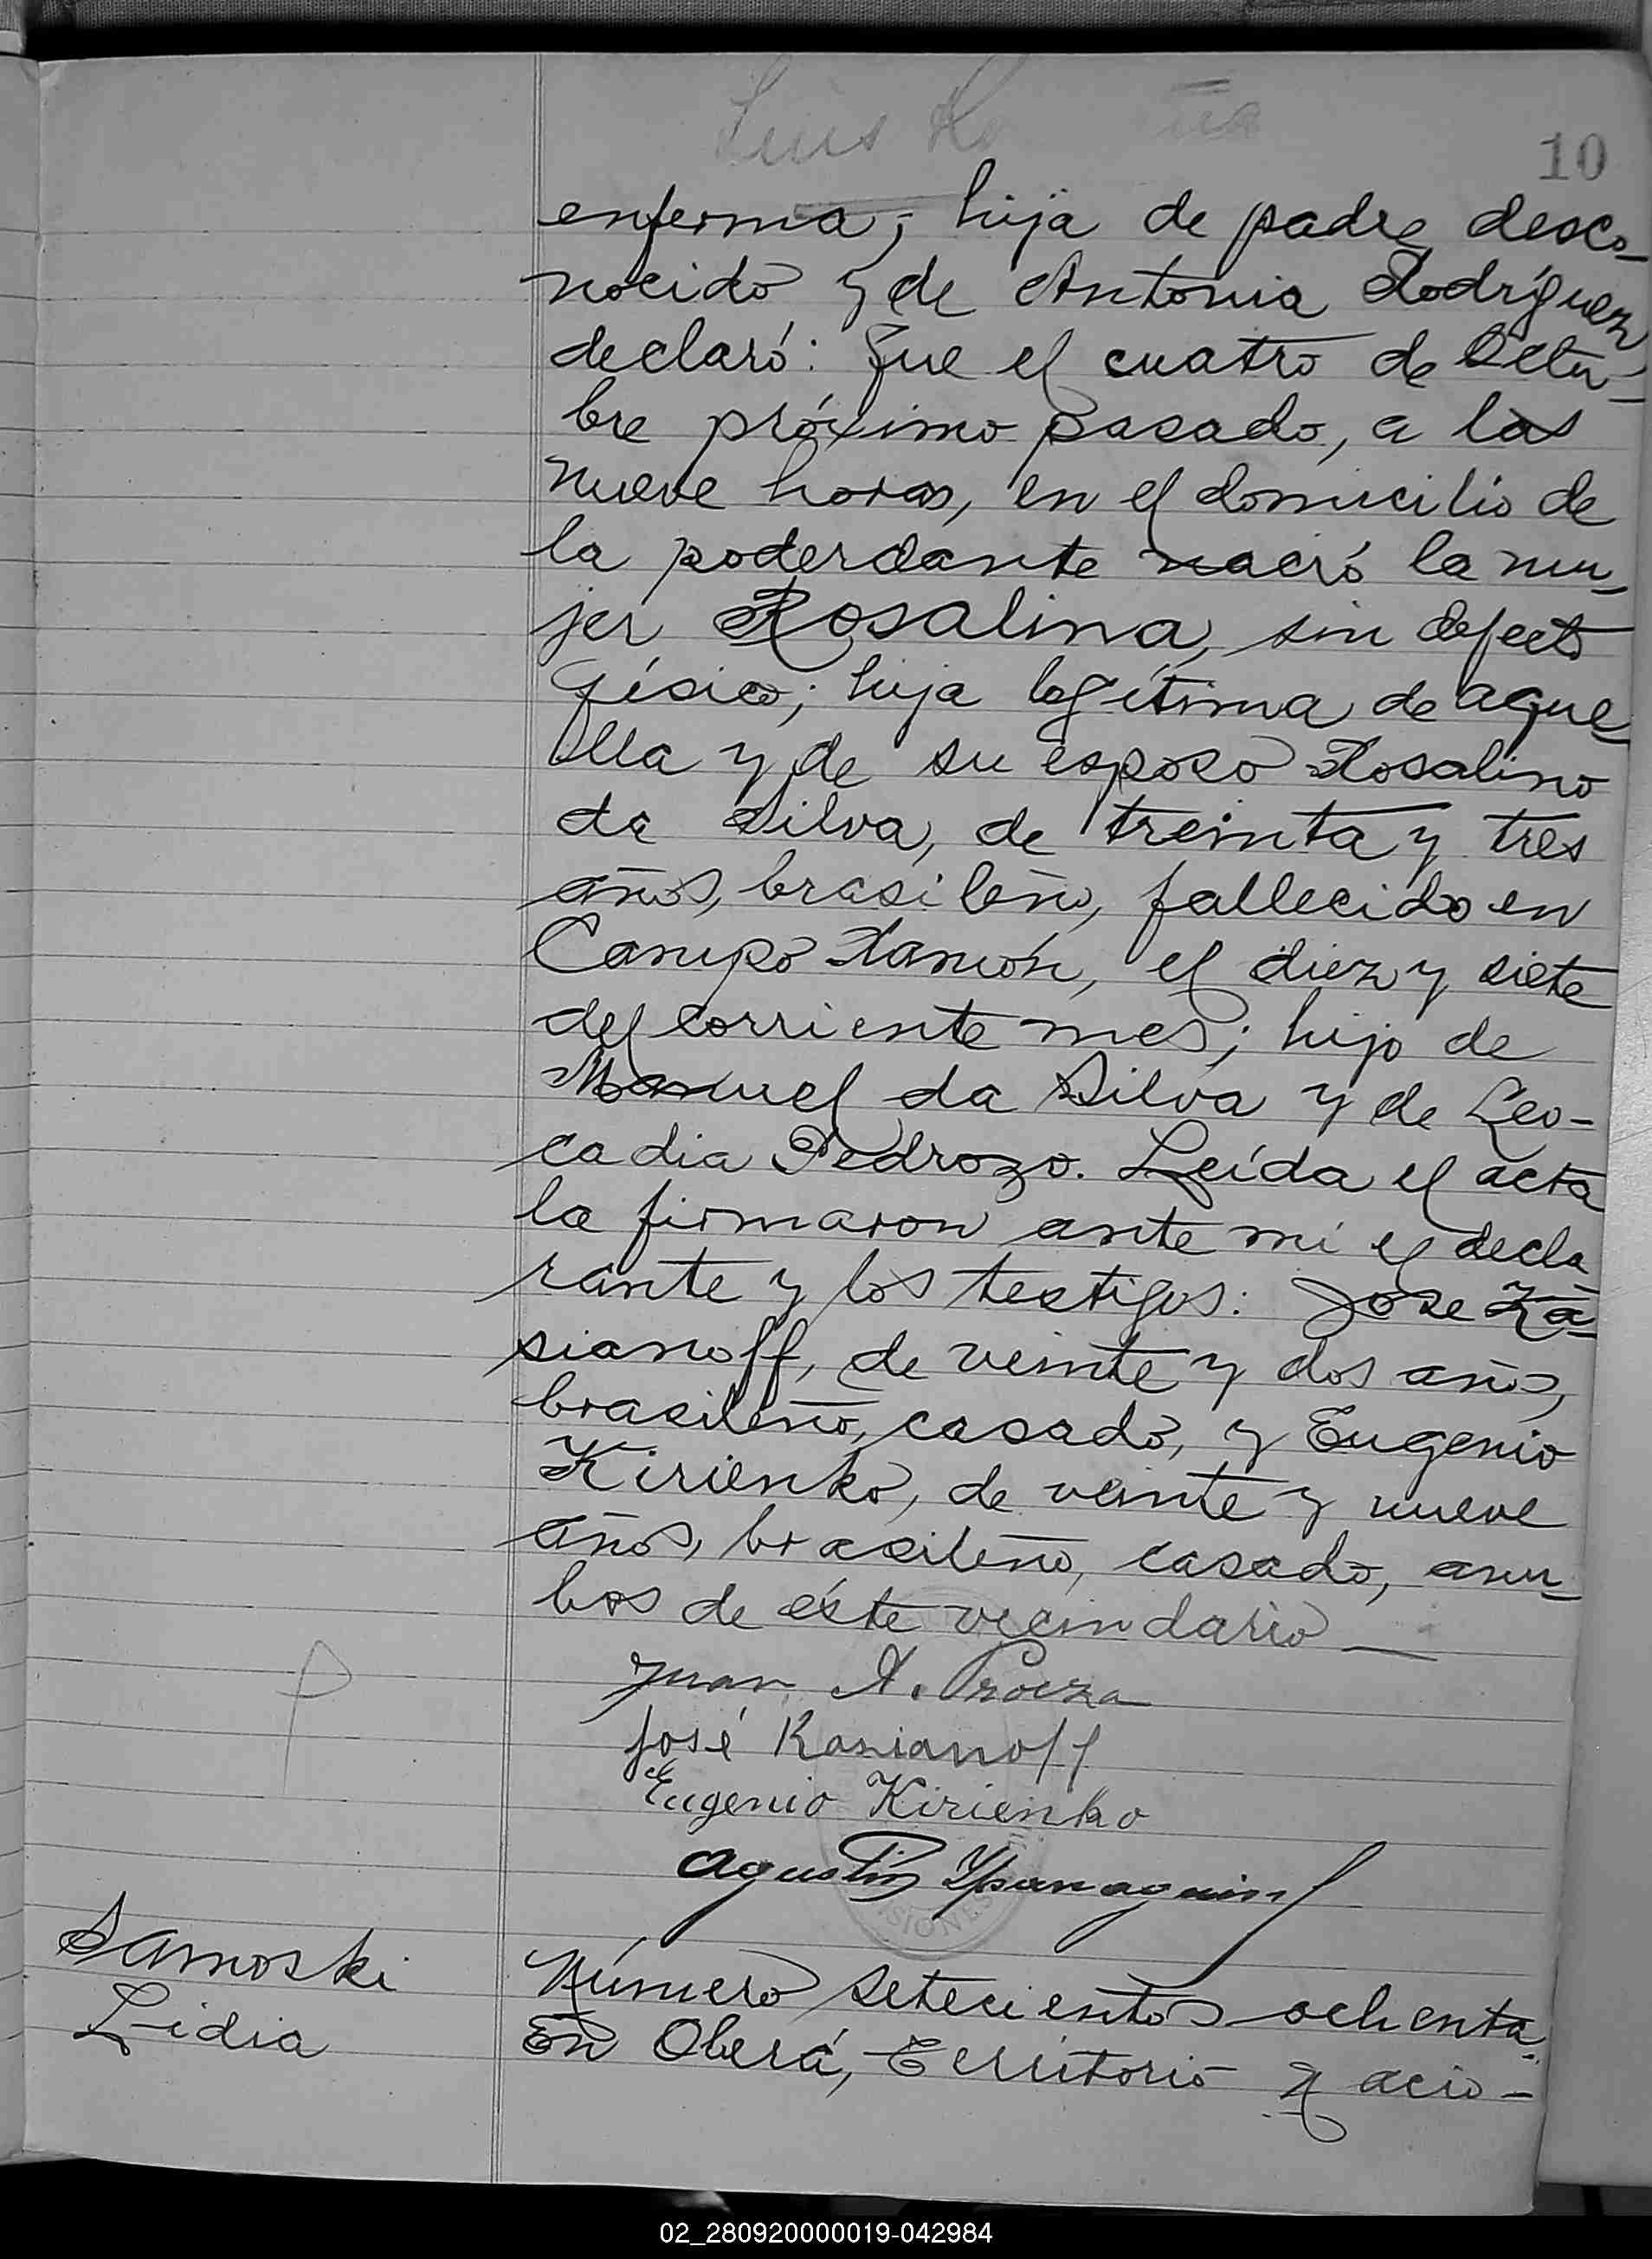 Luis
10
enferma; hija de padre desco-
nocido y de Antonia Rodríguez
declaró: Que el cuatro de Octu-
bre próximo pasado, a las
nueve horas, en el domicilio de
la poderdante nació la mu-
jer Rosalina, sin defecto
físico; hija legítima de aque-
lla y de su esposo Rosalino
da Silva, de treinta y tres
años, brasileño, fallecido en
Campo Ramón, el diez y siete
del corriente mes; hijo de
Manuel da Silva y de Leo-
cadia Pedrozo. Leída el acta
la firmaron ante mi el decla-
rante y los testigos: José Ka-
sianoff, de veinte y dos años,
brasileño, casado, y Eugenio
Kirienko, de veinte y nueve
años, brasileño, casado, am-
bos de éste vecindario —
Juan A.
José Kasianoff
Eugenio Kirienko
Agustín
Samoski
Lidia
Número setecientos ochenta.
En Oberá, Territorio Nacio-
02_280920000019-042984